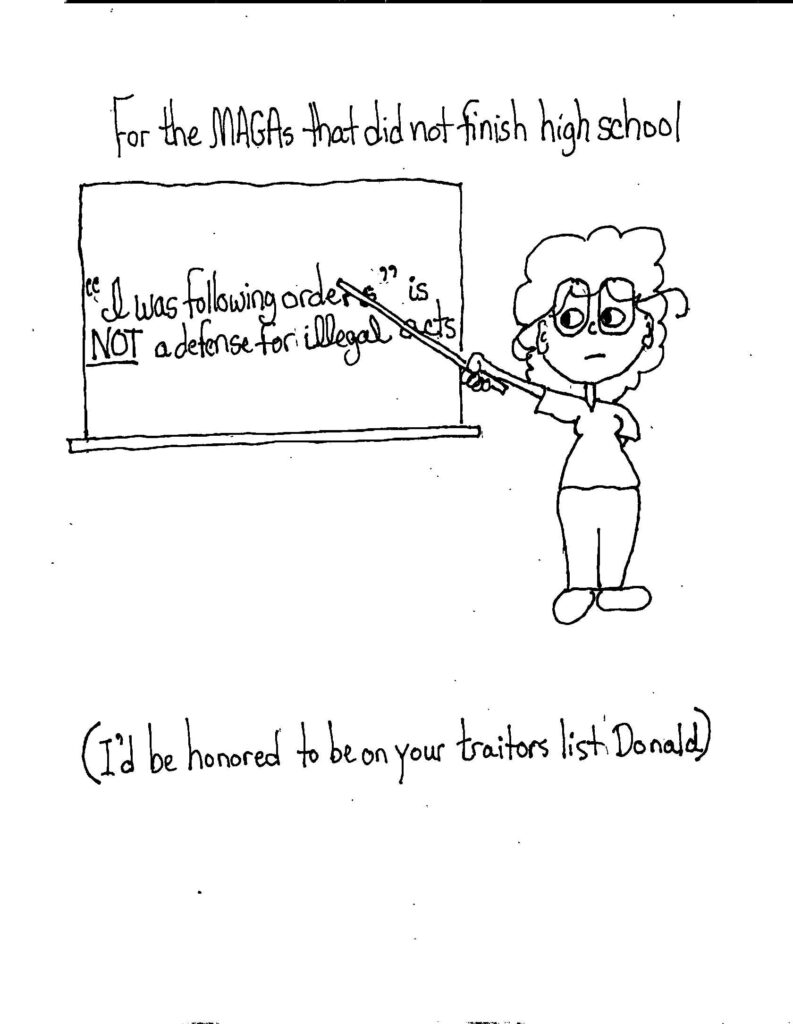 For the MAGAs that did not finish high school
"I was following orders" is
NOT a defense for illegal acts
(I'd be honored to be on your traitors list Donald)